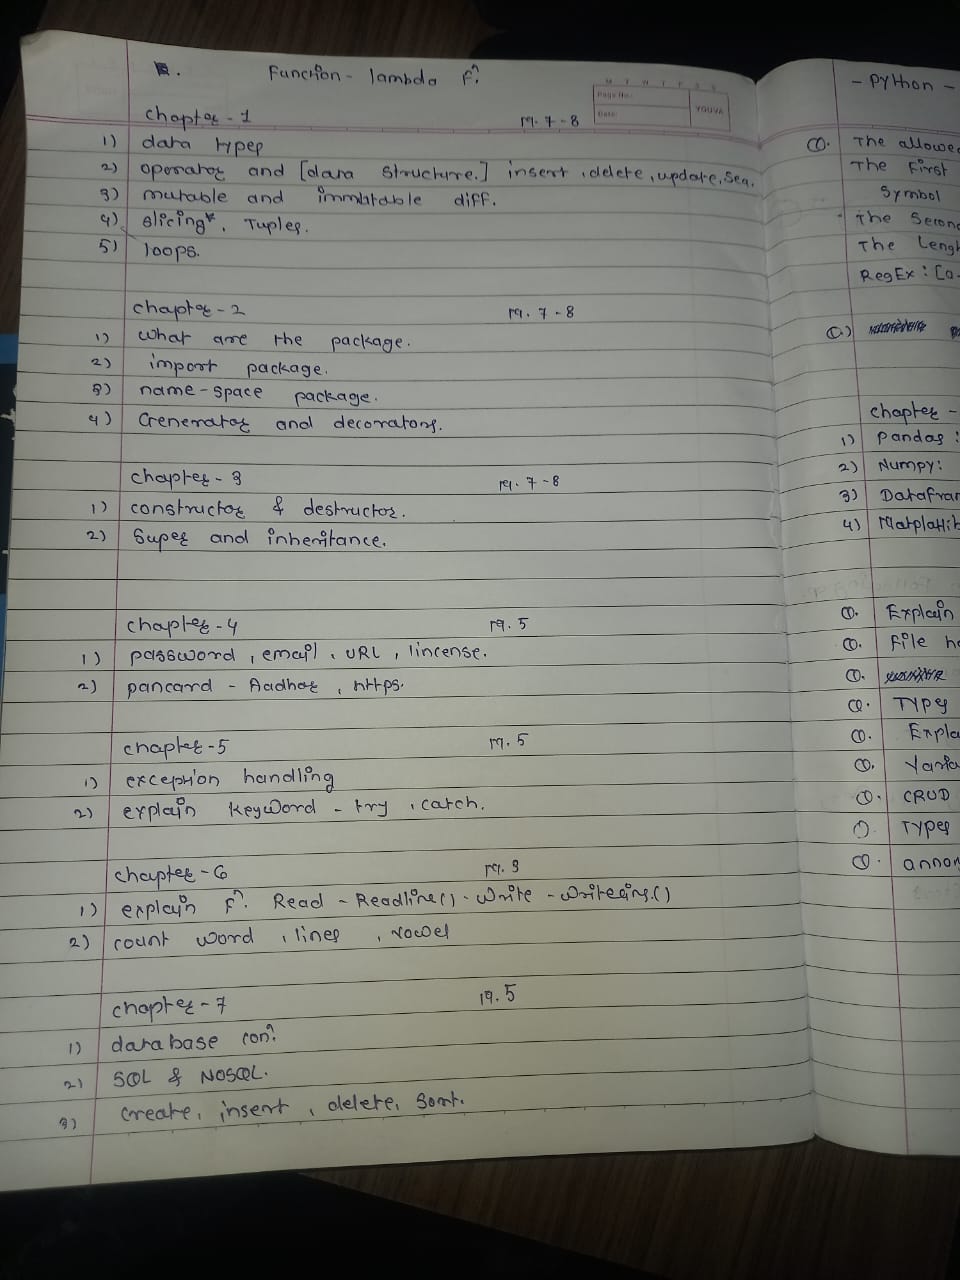 Function - lambda Fⁿ.
Page No.
Date:
YOUVA
chapter - 1 M. 7 - 8
1) data types
2) operator and [data structure.] insert, delete, update, sea.
3) mutable and immutable diff.
4) slicing*, Tuples.
5) loops.
chapter - 2 M. 7 - 8
1) what are the package.
2) import package.
3) name-space package.
4) Generator and decorators.
chapter - 3 M. 7 - 8
1) constructor & destructor.
2) Super and inheritance.
chapter - 4 M. 5
1) password, email, URL, lincense.
2) pancard - Aadhar, https.
chapter - 5 M. 5
1) exception handling
2) explain keyword - try, catch.
chapter - 6 M. 3
1) explain Fⁿ. Read - Readline() - write - writeline()
2) count word, lines, vowel
chapter - 7 M. 5
1) database conⁿ.
2) SQL & NOSQL.
3) create, insert, delete, sort.
- Python -
Q. The allowe
The First
Symbol
The Secon
The Leng
RegEx: [a-
Q.)
chapter -
1) Pandas:
2) Numpy:
3) Datafra
4) Matplotli
Q. Explain
Q. File h
Q.
Q. Types
Q. Expla
Q. Varia
Q. CRUD
Q. Types
Q. annon